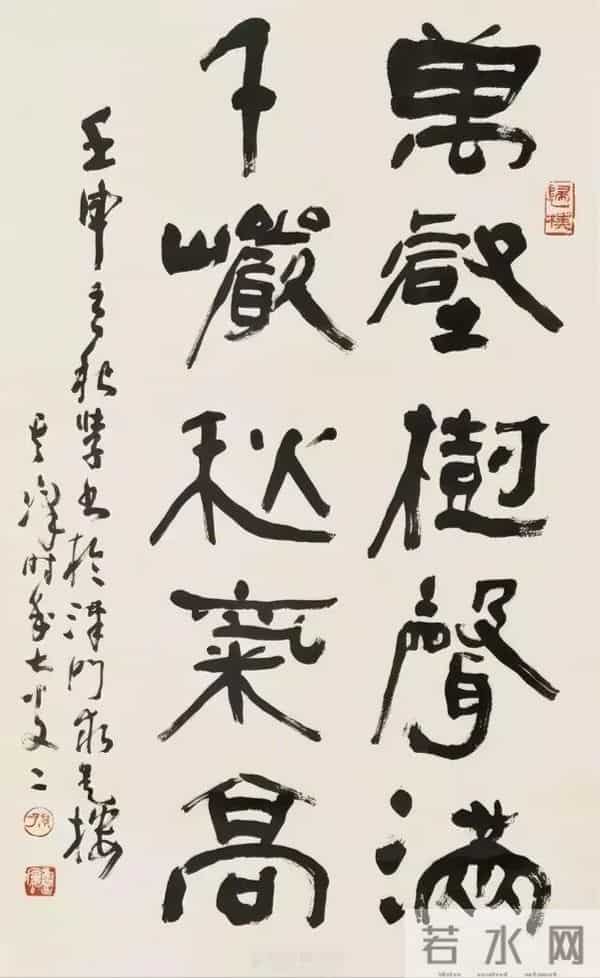 萬壑樹聲滿
千巖秋氣高
壬申秋書於津門求是樓
其峯時年七十又二
若水网